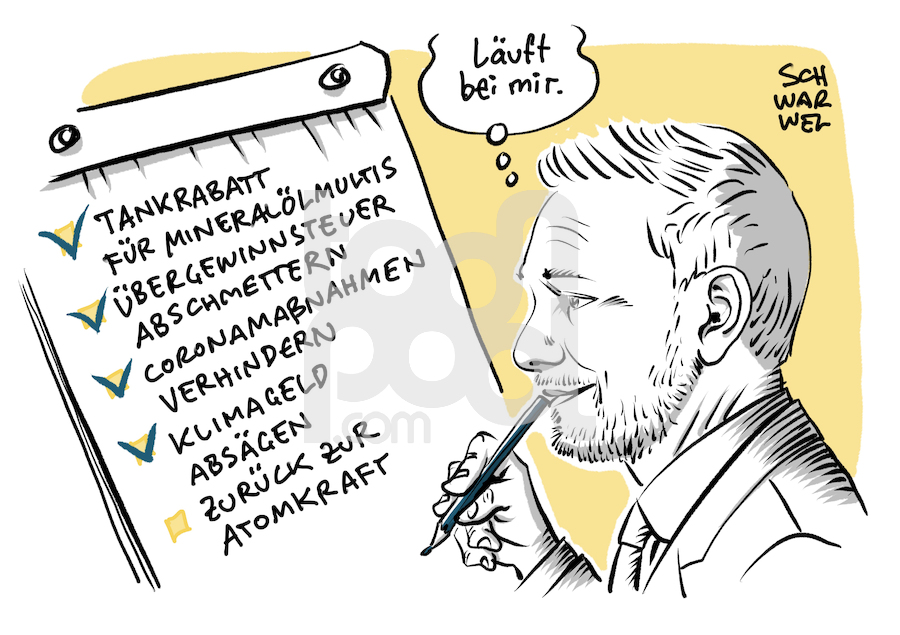 Läuft
bei mir.
SCH
WAR
WEL
TANKRABATT
FÜR MINERALÖLMULTIS
ÜBERGEWINNSTEUER
ABSCHMETTERN
CORONAMAßNAHMEN
VERHINDERN
KLIMAGELD
ABSÄGEN
ZURÜCK ZUR
ATOMKRAFT
toonpool
.com